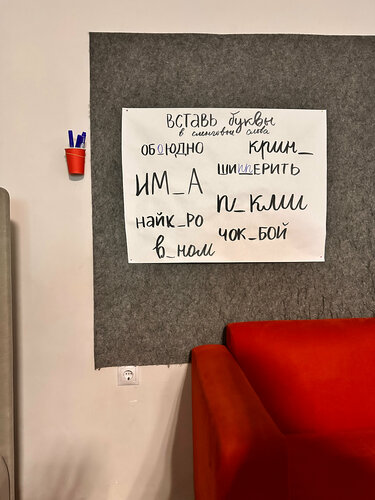 вставь буквы
в сленговые слова
ОБОЮДНО
крин_
ШИППЕРИТЬ
ИМ_А
п_кми
найк_РО
чок_БОЙ
в_ном